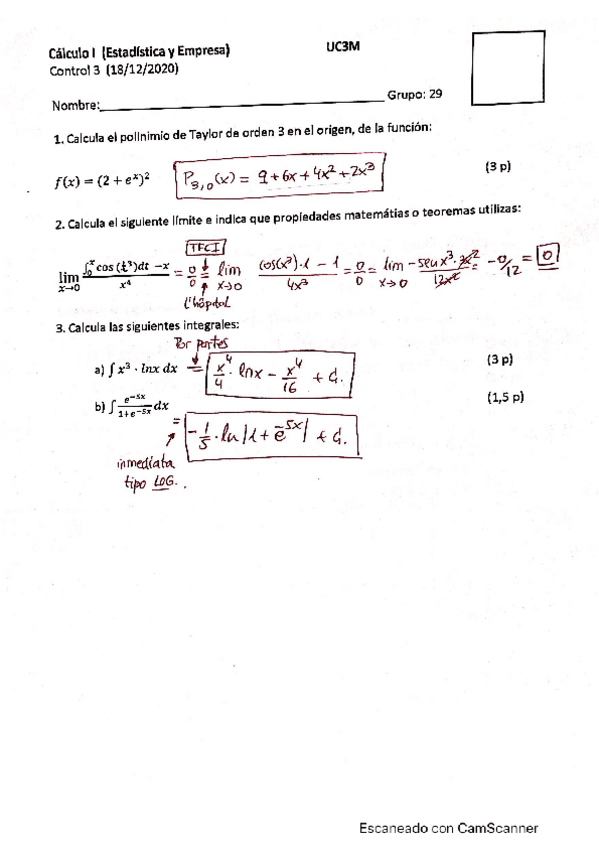 Cálculo I (Estadística y Empresa) UC3M
Control 3 (18/12/2020)
Nombre:____________ Grupo: 29
1. Calcula el polinimio de Taylor de orden 3 en el origen, de la función:
f(x) = (2 + e^x)^2 P_{3,0}(x) = 9 + 6x + 4x^2 + 2x^3 (3 p)
2. Calcula el siguiente límite e indica que propiedades matemátias o teoremas utilizas:
TFCI
lim_{x→0} (∫_0^x cos(t^3)dt − x)/x^4 = 0/0 = lim_{x→0} (cos(x^3)·1 − 1)/(4x^3) = 0/0 = lim_{x→0} (−sen x^3 · 3x^2)/(12x^2) = −0/12 = 0
L'hôpital
3. Calcula las siguientes integrales:
Por partes
a) ∫ x^3 · lnx dx = x^4/4 · lnx − x^4/16 + C. (3 p)
b) ∫ e^{−5x}/(1+e^{−5x}) dx (1,5 p)
= −1/5 · ln|1 + e^{−5x}| + C.
inmediata
tipo LOG.
Escaneado con CamScanner